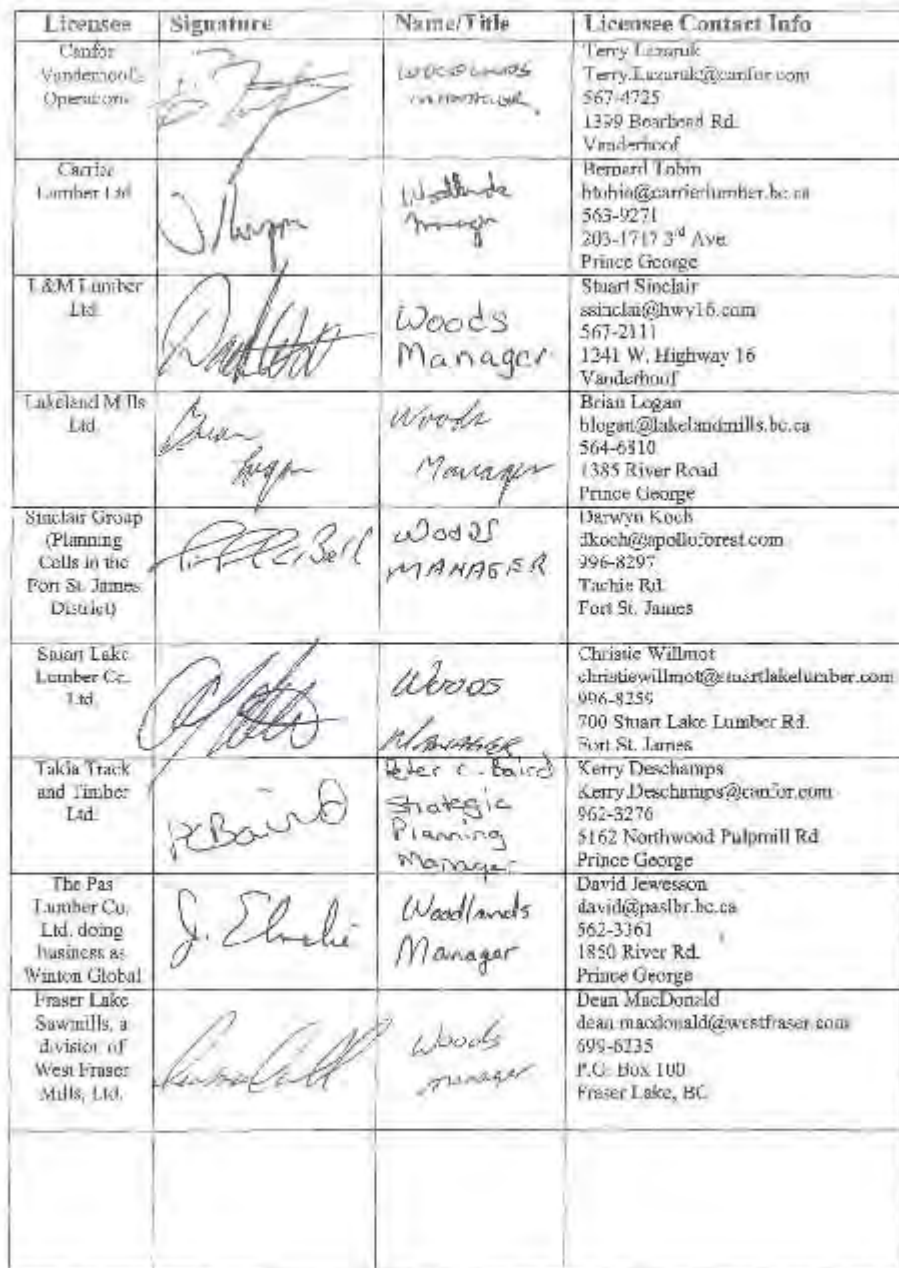 Licensee Signature Name/Title Licensee Contact Info
Canfor
Vanderhoof
Operations
WOODLANDS
MANAGER
Terry Lazaruk
Terry.Lazaruk@canfor.com
567-4725
1399 Bearhead Rd.
Vanderhoof
Carrier
Lumber Ltd.
Woodlands
Manager
Bernard Tobin
btobin@carrierlumber.bc.ca
563-9271
203-1717 3rd Ave.
Prince George
L&M Lumber
Ltd.
Woods
Manager
Stuart Sinclair
ssinclai@hwy16.com
567-2111
1241 W. Highway 16
Vanderhoof
Lakeland Mills
Ltd.
Brian
Logan
Woods
Manager
Brian Logan
blogan@lakelandmills.bc.ca
564-6810
1385 River Road
Prince George
Sinclair Group
(Planning
Cells in the
Fort St. James
District)
Bell
Woods
MANAGER
Darwyn Koch
dkoch@apolloforest.com
996-8297
Tachie Rd.
Fort St. James
Stuart Lake
Lumber Co.
Ltd.
WOODS
MANAGER
Christie Willmot
christiewillmot@stuartlakelumber.com
996-8259
700 Stuart Lake Lumber Rd.
Fort St. James
Takla Track
and Timber
Ltd.
PCBaird
Peter C. Baird
Strategic
Planning
Manager
Kerry Deschamps
Kerry.Deschamps@canfor.com
962-3276
5162 Northwood Pulpmill Rd
Prince George
The Pas
Lumber Co.
Ltd. doing
business as
Winton Global
J.
Woodlands
Manager
David Jewesson
david@paslbr.bc.ca
562-3361
1850 River Rd.
Prince George
Fraser Lake
Sawmills, a
division of
West Fraser
Mills, Ltd.
Woods
manager
Dean MacDonald
dean.macdonald@westfraser.com
699-6235
P.O. Box 100
Fraser Lake, BC